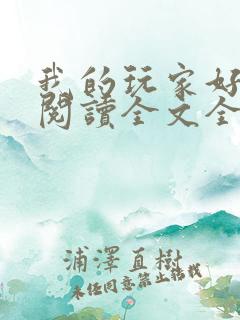 我的玩家好
閱讀全文全
浦澤直樹
未经同意禁止转载